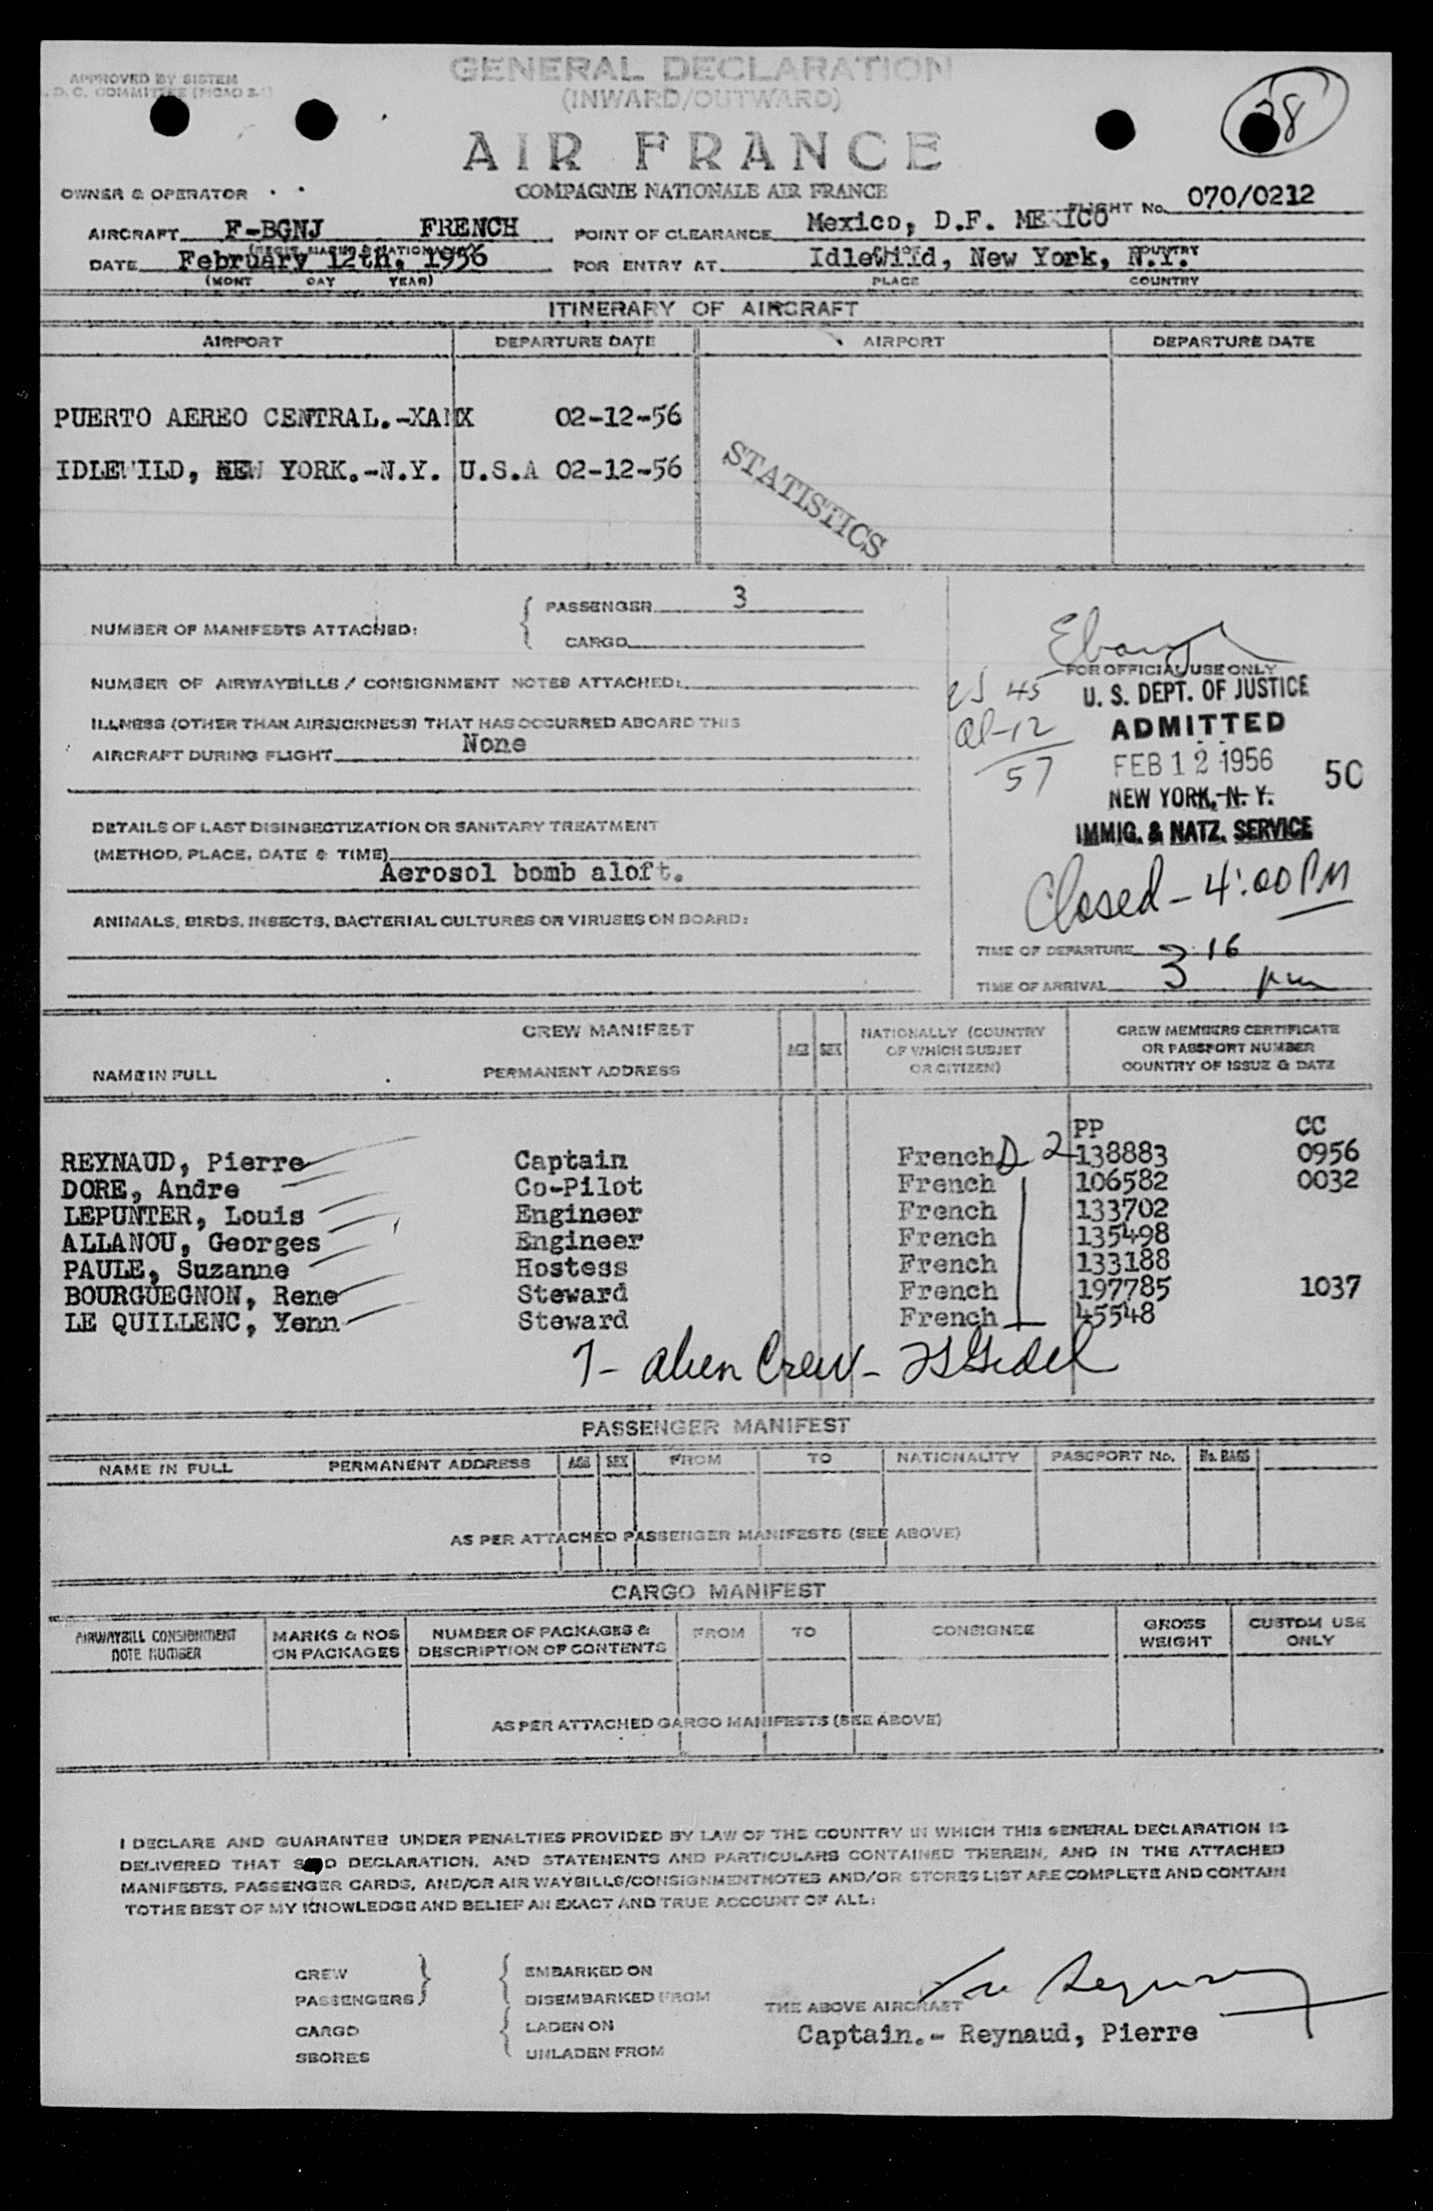 APPROVED BY SISTEM
GENERAL DECLARATION
(INWARD/OUTWARD)
28
AIR FRANCE
OWNER & OPERATOR
COMPAGNIE NATIONALE AIR FRANCE
FLIGHT No. 070/0212
AIRCRAFT F-BGNJ FRENCH
POINT OF CLEARANCE Mexico, D.F. MEXICO
DATE February 12th, 1956
FOR ENTRY AT Idlewild, New York, N.Y.
(MONT DAY YEAR)
PLACE COUNTRY
ITINERARY OF AIRCRAFT
AIRPORT DEPARTURE DATE AIRPORT DEPARTURE DATE
PUERTO AEREO CENTRAL.-XAMX 02-12-56
IDLEWILD, NEW YORK.-N.Y. U.S.A 02-12-56
STATISTICS
NUMBER OF MANIFESTS ATTACHED:
PASSENGER 3
CARGO
NUMBER OF AIRWAYBILLS / CONSIGNMENT NOTES ATTACHED:
ILLNESS (OTHER THAN AIRSICKNESS) THAT HAS OCCURRED ABOARD THIS
AIRCRAFT DURING FLIGHT None
DETAILS OF LAST DISINSECTIZATION OR SANITARY TREATMENT
(METHOD, PLACE, DATE & TIME)
Aerosol bomb aloft.
ANIMALS, BIRDS, INSECTS, BACTERIAL CULTURES OR VIRUSES ON BOARD:
FOR OFFICIAL USE ONLY
45
al-12
57
U. S. DEPT. OF JUSTICE
ADMITTED
FEB 12 1956
50
NEW YORK, N. Y.
IMMIG. & NATZ. SERVICE
Closed - 4:00 PM
TIME OF DEPARTURE
TIME OF ARRIVAL 3 16 pm
CREW MANIFEST
NAME IN FULL
PERMANENT ADDRESS
AGE
SEX
NATIONALLY (COUNTRY
OF WHICH SUBJET
OR CITIZEN)
CREW MEMBERS CERTIFICATE
OR PASSPORT NUMBER
COUNTRY OF ISSUE & DATE
PP CC
REYNAUD, Pierre Captain French D 2 138883 0956
DORE, Andre Co-Pilot French 106582 0032
LEPUNTER, Louis Engineer French 133702
ALLANOU, Georges Engineer French 135498
PAULE, Suzanne Hostess French 133188
BOURGUEGNON, Rene Steward French 197785 1037
LE QUILLENC, Yenn Steward French 45548
7- alien Crew -
PASSENGER MANIFEST
NAME IN FULL PERMANENT ADDRESS AGE SEX FROM TO NATIONALITY PASSPORT No. No. BAGS
AS PER ATTACHED PASSENGER MANIFESTS (SEE ABOVE)
CARGO MANIFEST
AIRWAYBILL CONSIGNMENT
NOTE NUMBER
MARKS & NOS
ON PACKAGES
NUMBER OF PACKAGES &
DESCRIPTION OF CONTENTS
FROM
TO
CONSIGNEE
GROSS
WEIGHT
CUSTOM USE
ONLY
AS PER ATTACHED CARGO MANIFESTS (SEE ABOVE)
I DECLARE AND GUARANTEE UNDER PENALTIES PROVIDED BY LAW OF THE COUNTRY IN WHICH THIS GENERAL DECLARATION IS
DELIVERED THAT SAID DECLARATION, AND STATEMENTS AND PARTICULARS CONTAINED THEREIN, AND IN THE ATTACHED
MANIFESTS, PASSENGER CARDS, AND/OR AIR WAYBILLS/CONSIGNMENTNOTES AND/OR STORES LIST ARE COMPLETE AND CONTAIN
TOTHE BEST OF MY KNOWLEDGE AND BELIEF AN EXACT AND TRUE ACCOUNT OF ALL:
CREW
PASSENGERS
CARGO
SBORES
EMBARKED ON
DISEMBARKED FROM
LADEN ON
UNLADEN FROM
THE ABOVE AIRCRAFT
Captain.- Reynaud, Pierre